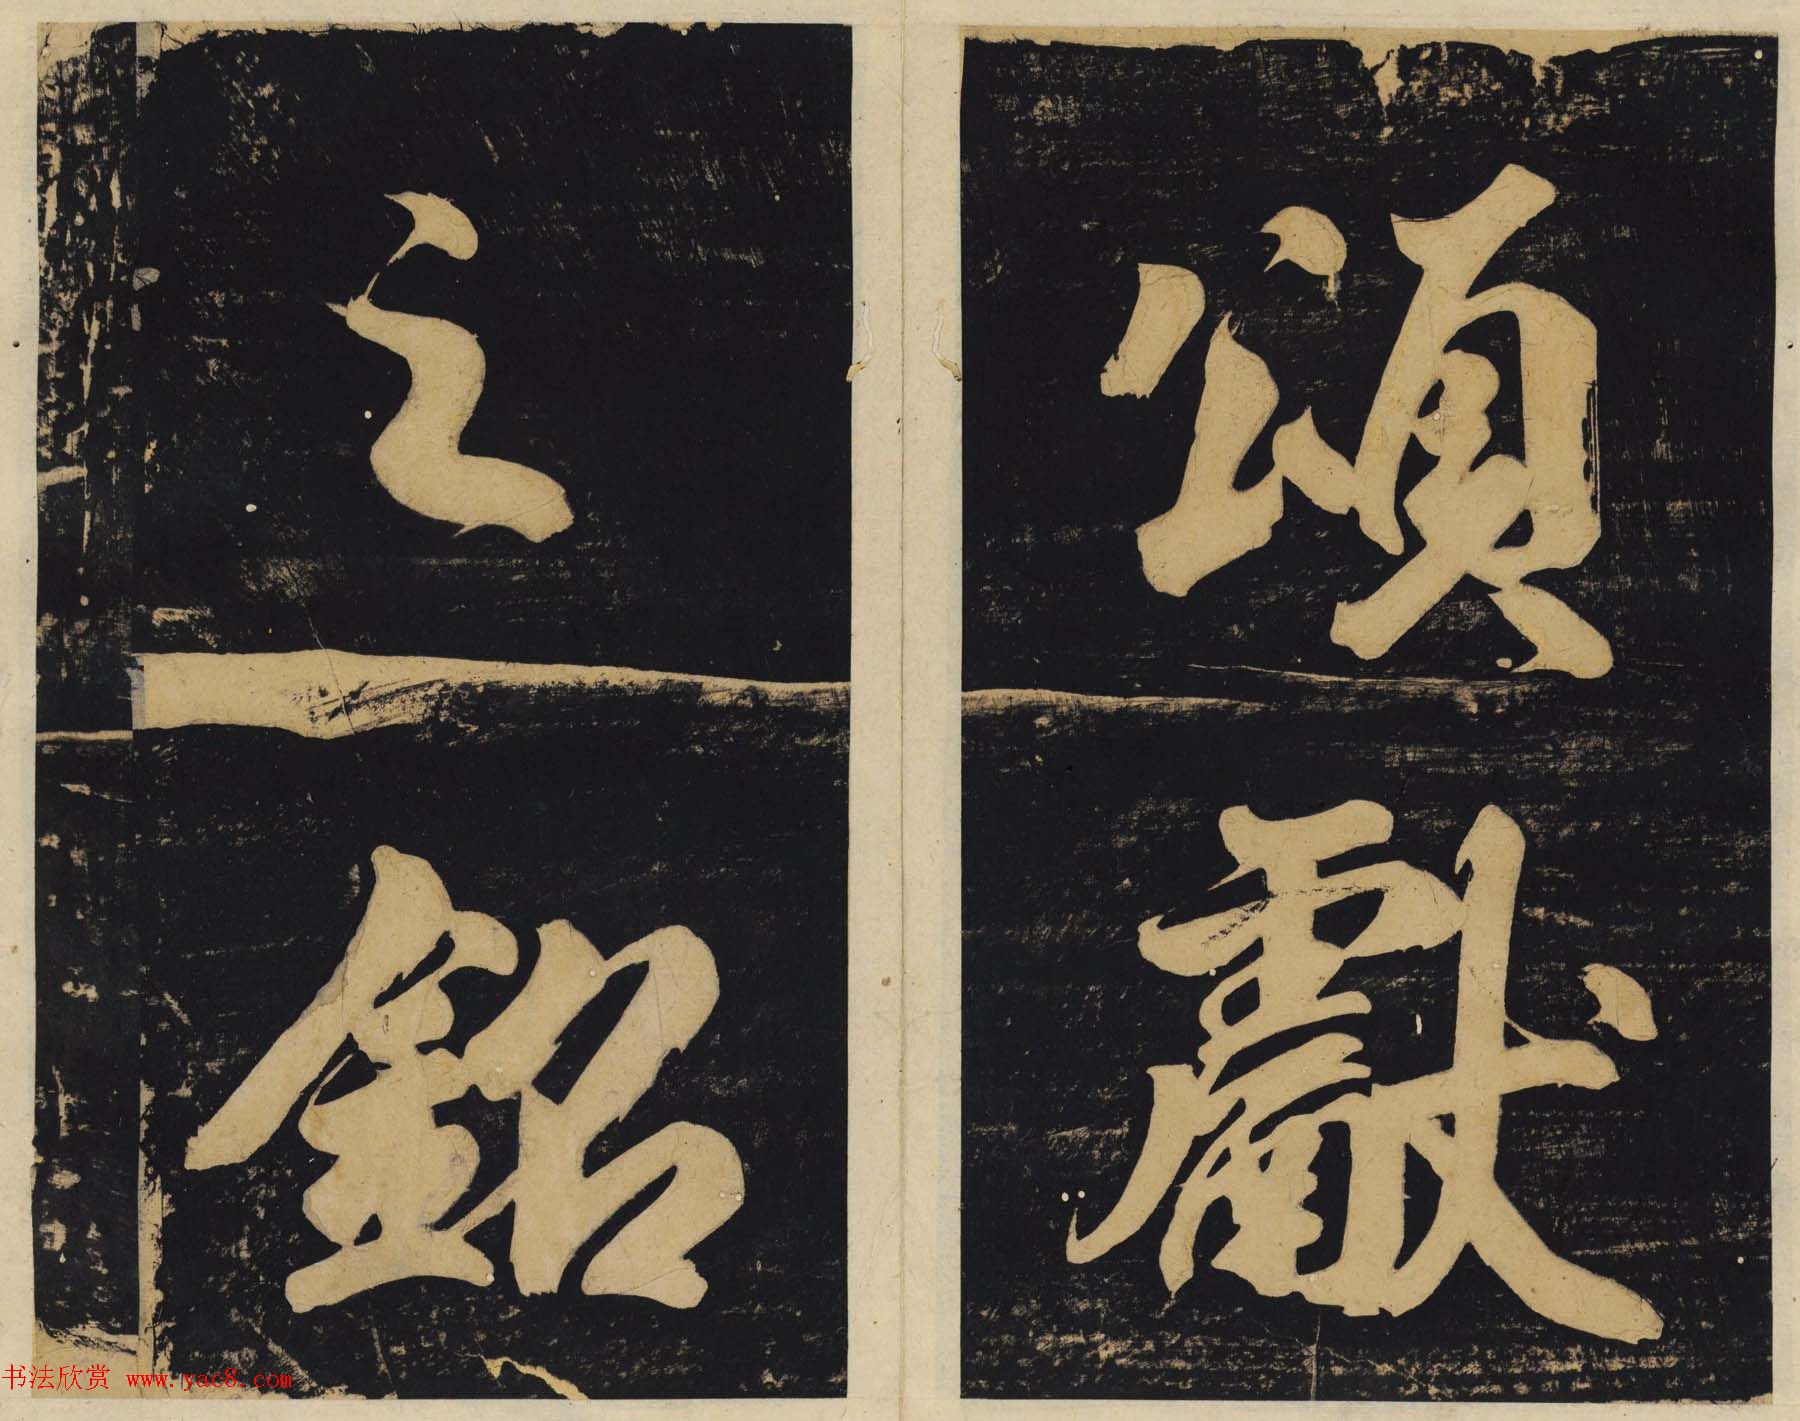 頌獻
之銘
书法欣赏 www.yac8.com